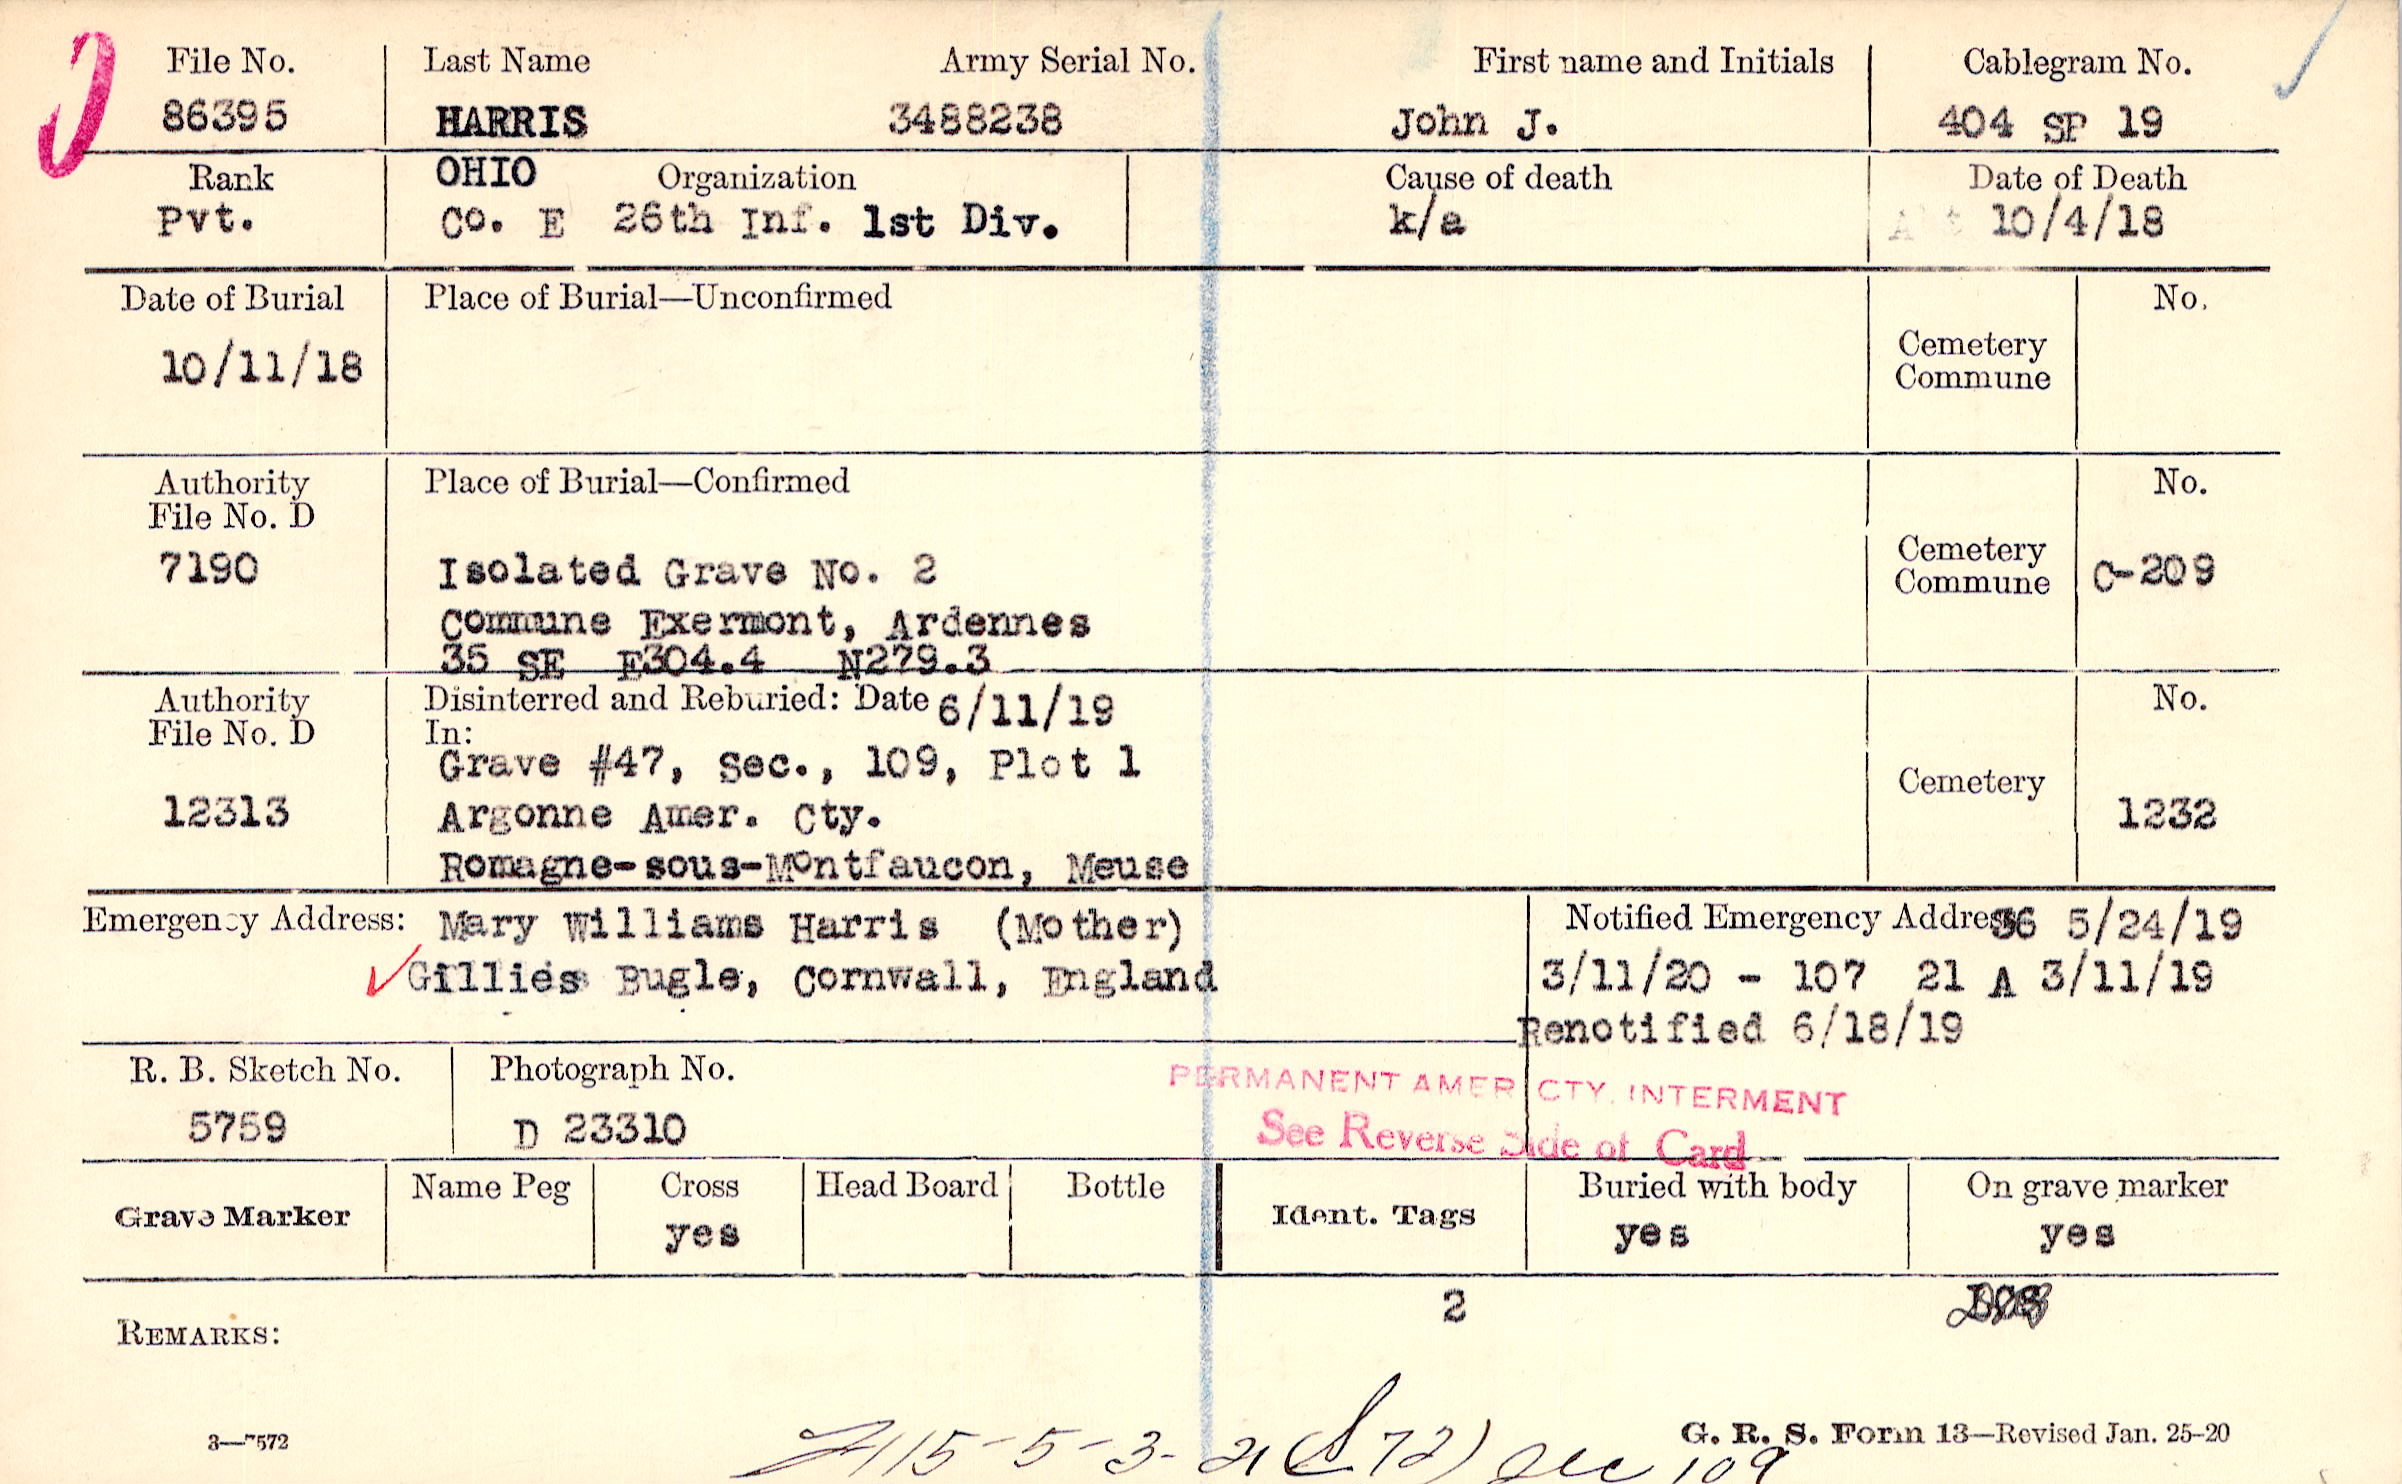 File No. Last Name Army Serial No. First name and Initials Cablegram No.
86395 HARRIS 3488238 John J. 404 SP 19
Rank OHIO Organization Cause of death Date of Death
Pvt. Co. E 26th Inf. 1st Div. k/a 10/4/18
Date of Burial Place of Burial—Unconfirmed No.
10/11/18
Cemetery
Commune
Authority Place of Burial—Confirmed No.
File No. D
7190 Isolated Grave No. 2 Cemetery
Commune C-209
Commune Exermont, Ardennes
35 SE E304.4 N279.3
Authority Disinterred and Reburied: Date 6/11/19 No.
File No. D In:
Grave #47, Sec., 109, Plot 1
Cemetery
12313 Argonne Amer. Cty. 1232
Romagne-sous-Montfaucon, Meuse
Emergency Address: Mary Williams Harris (Mother) Notified Emergency Address 5/24/19
Gillies Bugle, Cornwall, England 3/11/20 - 107 21 A 3/11/19
Renotified 6/18/19
R. B. Sketch No. Photograph No.
PERMANENT AMER CTY. INTERMENT
5759 D 23310 See Reverse Side of Card
Name Peg Cross Head Board Bottle Buried with body On grave marker
Grave Marker Ident. Tags
yes yes yes
2
REMARKS:
3—7572 G. R. S. Form 13—Revised Jan. 25-20
115-5-3-21 (S 72) Sec 109